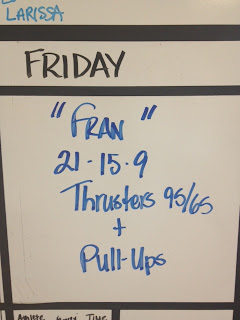 LARISSA
FRIDAY
"FRAN"
21-15-9
Thrusters 95/65
+
Pull-Ups
Time